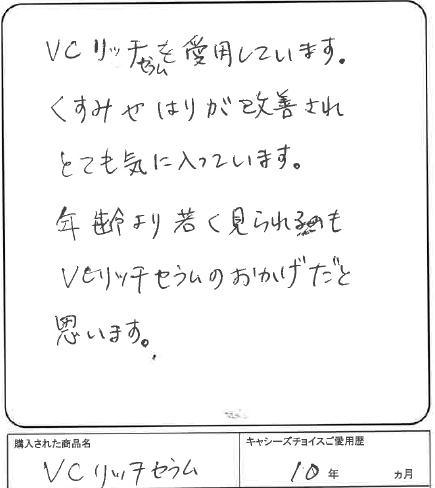 VCリッチセラムを愛用しています。
くすみやはりが改善され
とても気に入っています。
年齢より若く見られるのも
VCリッチセラムのおかげだと
思います。
購入された商品名
VCリッチセラム
キャシーズチョイスご愛用歴
10年 ヵ月